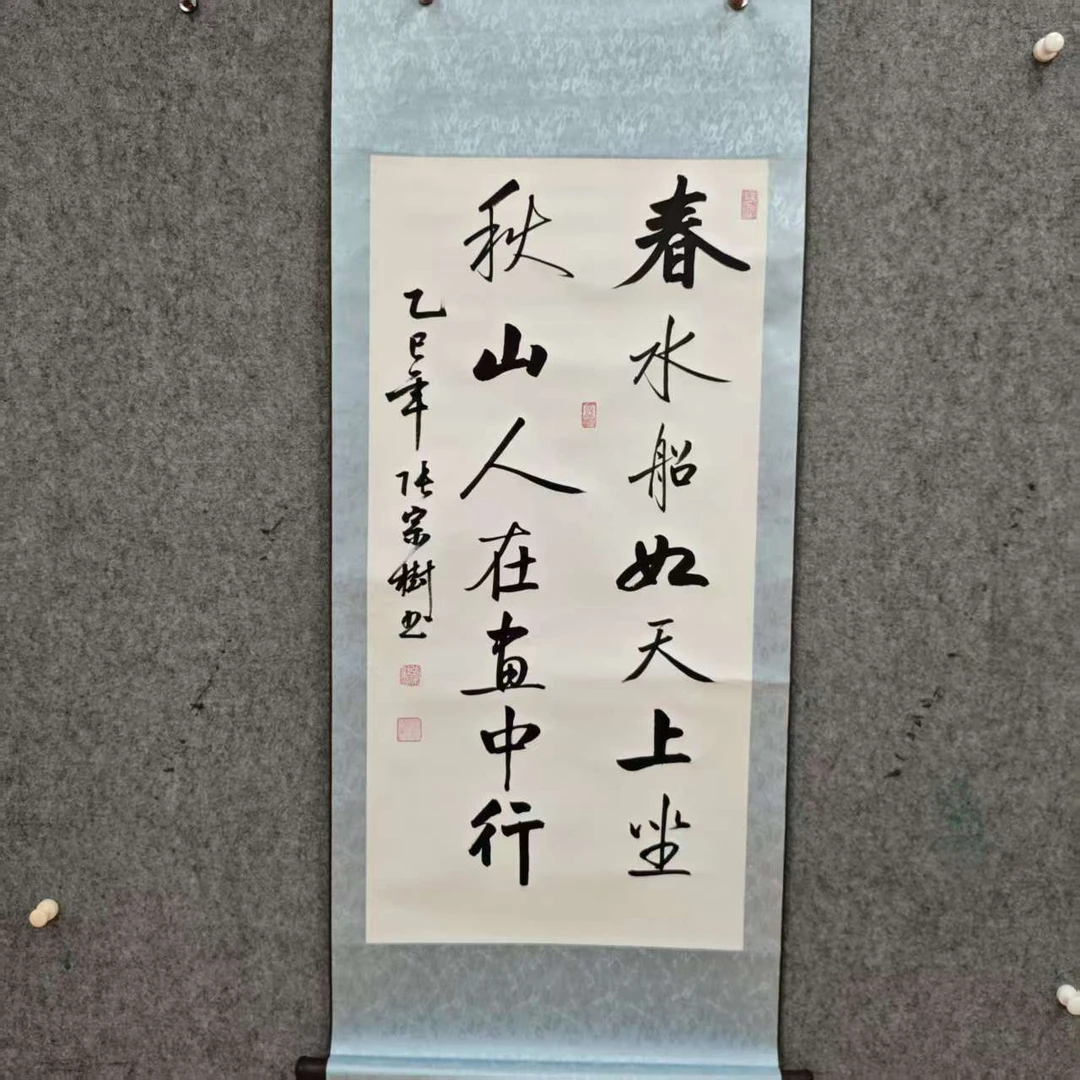 春水船如天上坐
秋山人在画中行
乙巳年 张宗樹书